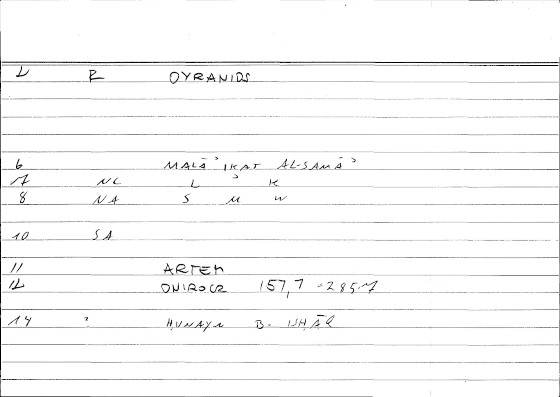 2 R OYRANIDS
6 MALĀʾIKAT AL-SAMĀʾ
7 NC L ʾ K
8 NA S M W
10 SA
11 ARTEM
12 ONIROCR 157,7 = 285,7
14 ? ḤUNAYN B. ISḤĀQ